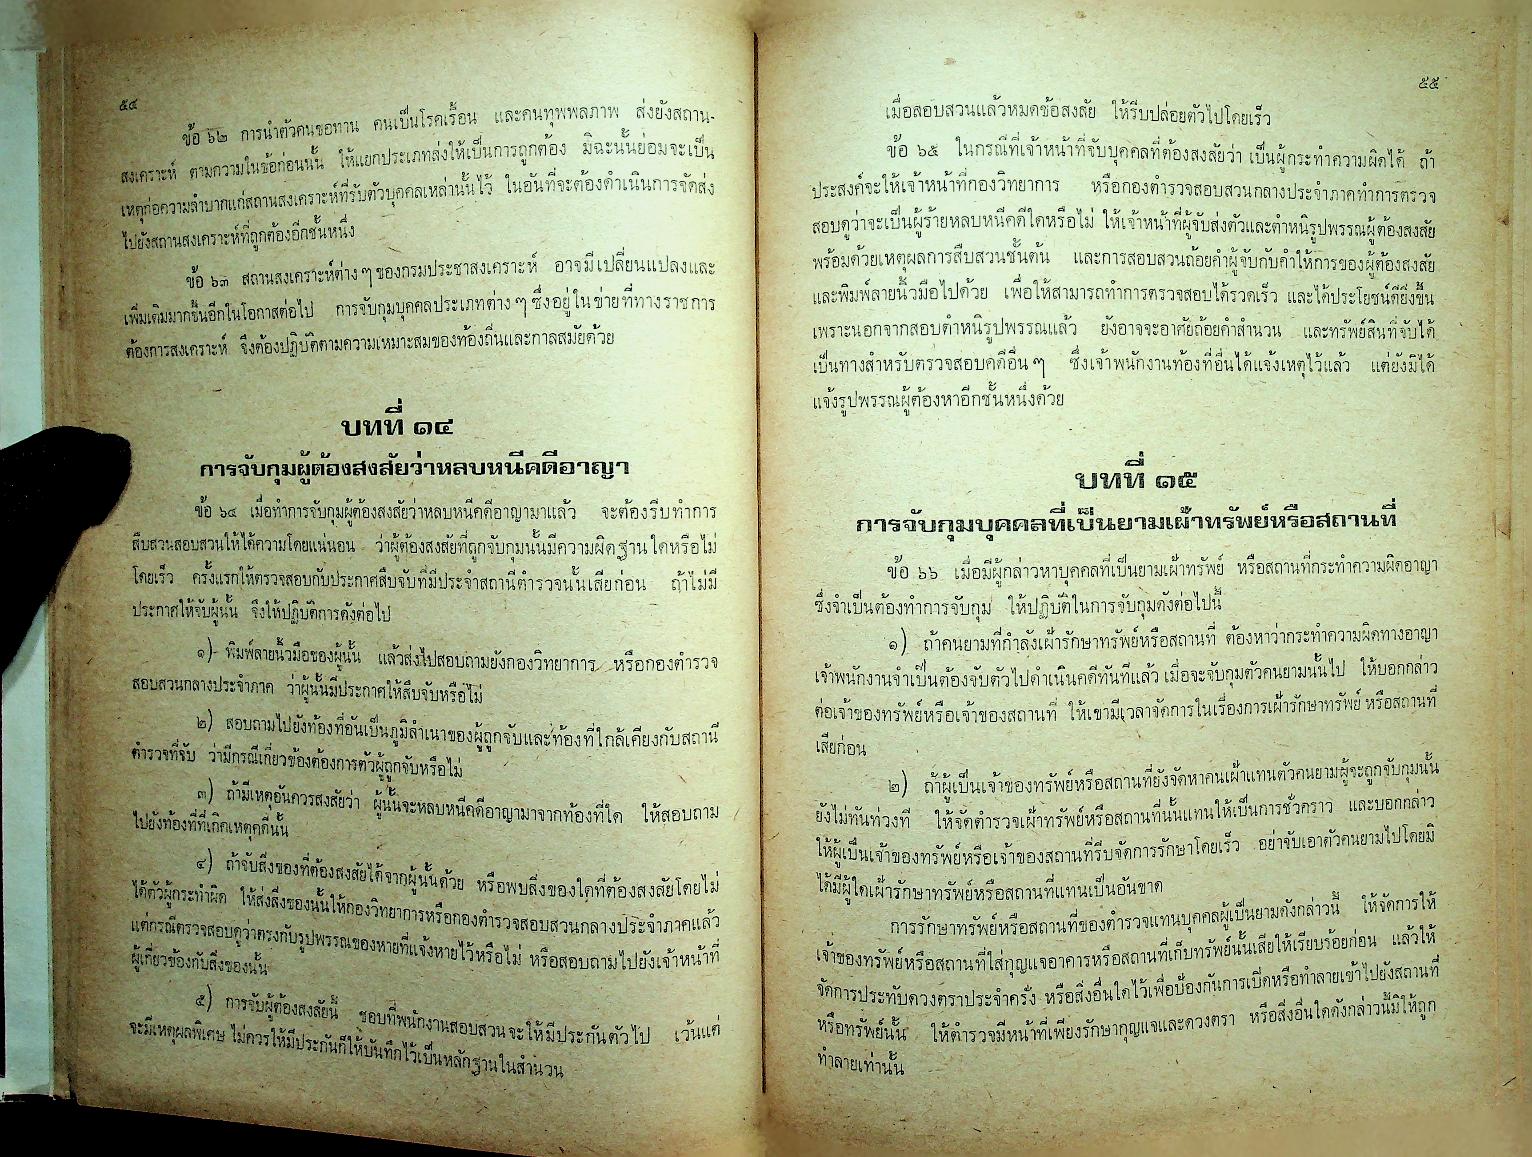 ๕๔
ข้อ ๖๒ การนำตัวคนขอทาน คนเป็นโรคเรื้อน และคนทุพพลภาพ ส่งยังสถาน-
สงเคราะห์ ตามความในข้อก่อนนั้น ให้แยกประเภทส่งให้เป็นการถูกต้อง มิฉะนั้นย่อมจะเป็น
เหตุก่อความลำบากแก่สถานสงเคราะห์ที่รับตัวบุคคลเหล่านั้นไว้ ในอันที่จะต้องดำเนินการจัดส่ง
ไปยังสถานสงเคราะห์ที่ถูกต้องอีกชั้นหนึ่ง
ข้อ ๖๓ สถานสงเคราะห์ต่าง ๆ ของกรมประชาสงเคราะห์ อาจมีเปลี่ยนแปลงและ
เพิ่มเติมมากขึ้นอีกในโอกาสต่อไป การจับกุมบุคคลประเภทต่าง ๆ ซึ่งอยู่ในข่ายที่ทางราชการ
ต้องการสงเคราะห์ จึงต้องปฏิบัติตามความเหมาะสมของท้องถิ่นและกาลสมัยด้วย
บทที่ ๑๔
การจับกุมผู้ต้องสงสัยว่าหลบหนีคดีอาญา
ข้อ ๖๔ เมื่อทำการจับกุมผู้ต้องสงสัยว่าหลบหนีคดีอาญามาแล้ว จะต้องรีบทำการ
สืบสวนสอบสวนให้ได้ความโดยแน่นอน ว่าผู้ต้องสงสัยที่ถูกจับกุมนั้นมีความผิดฐานใดหรือไม่
โดยเร็ว ครั้งแรกให้ตรวจสอบกับประกาศสืบจับที่มีประจำสถานีตำรวจนั้นเสียก่อน ถ้าไม่มี
ประกาศให้จับผู้นั้น จึงให้ปฏิบัติการดังต่อไป
๑) พิมพ์ลายนิ้วมือของผู้นั้น แล้วส่งไปสอบถามยังกองวิทยาการ หรือกองตำรวจ
สอบสวนกลางประจำภาค ว่าผู้นั้นมีประกาศให้สืบจับหรือไม่
๒) สอบถามไปยังท้องที่อันเป็นภูมิลำเนาของผู้ถูกจับและท้องที่ใกล้เคียงกับสถานี
ตำรวจที่จับ ว่ามีกรณีเกี่ยวข้องต้องการตัวผู้ถูกจับหรือไม่
๓) ถ้ามีเหตุอันควรสงสัยว่า ผู้นั้นจะหลบหนีคดีอาญามาจากท้องที่ใด ให้สอบถาม
ไปยังท้องที่ที่เกิดเหตุคดีนั้น
๔) ถ้าจับสิ่งของที่ต้องสงสัยได้จากผู้นั้นด้วย หรือพบสิ่งของใดที่ต้องสงสัยโดยไม่
ได้ตัวผู้กระทำผิด ให้ส่งสิ่งของนั้นให้กองวิทยาการหรือกองตำรวจสอบสวนกลางประจำภาคแล้ว
แต่กรณีตรวจสอบดูว่าตรงกับรูปพรรณของหายที่แจ้งหายไว้หรือไม่ หรือสอบถามไปยังเจ้าหน้าที่
ผู้เกี่ยวข้องกับสิ่งของนั้น
๕) การจับผู้ต้องสงสัยนี้ ชอบที่พนักงานสอบสวนจะให้มีประกันตัวไป เว้นแต่
จะมีเหตุผลพิเศษ ไม่ควรให้มีประกันก็ให้บันทึกไว้เป็นหลักฐานในสำนวน
๕๕
เมื่อสอบสวนแล้วหมดข้อสงสัย ให้รีบปล่อยตัวไปโดยเร็ว
ข้อ ๖๕ ในกรณีที่เจ้าหน้าที่จับบุคคลที่ต้องสงสัยว่า เป็นผู้กระทำความผิดได้ ถ้า
ประสงค์จะให้เจ้าหน้าที่กองวิทยาการ หรือกองตำรวจสอบสวนกลางประจำภาคทำการตรวจ
สอบดูว่าจะเป็นผู้ร้ายหลบหนีคดีใดหรือไม่ ให้เจ้าหน้าที่ผู้จับส่งตัวและตำหนิรูปพรรณผู้ต้องสงสัย
พร้อมด้วยเหตุผลการสืบสวนชั้นต้น และการสอบสวนถ้อยคำผู้จับกับคำให้การของผู้ต้องสงสัย
และพิมพ์ลายนิ้วมือไปด้วย เพื่อให้สามารถทำการตรวจสอบได้รวดเร็ว และได้ประโยชน์ดียิ่งขึ้น
เพราะนอกจากสอบตำหนิรูปพรรณแล้ว ยังอาจจะอาศัยถ้อยคำสำนวน และทรัพย์สินที่จับได้
เป็นทางสำหรับตรวจสอบคดีอื่น ๆ ซึ่งเจ้าพนักงานท้องที่อื่นได้แจ้งเหตุไว้แล้ว แต่ยังมิได้
แจ้งรูปพรรณผู้ต้องหาอีกชั้นหนึ่งด้วย
บทที่ ๑๕
การจับกุมบุคคลที่เป็นยามเฝ้าทรัพย์หรือสถานที่
ข้อ ๖๖ เมื่อมีผู้กล่าวหาบุคคลที่เป็นยามเฝ้าทรัพย์ หรือสถานที่กระทำความผิดอาญา
ซึ่งจำเป็นต้องทำการจับกุม ให้ปฏิบัติในการจับกุมดังต่อไปนี้
๑) ถ้าคนยามที่กำลังเฝ้ารักษาทรัพย์หรือสถานที่ ต้องหาว่ากระทำความผิดทางอาญา
เจ้าพนักงานจำเป็นต้องจับตัวไปดำเนินคดีทันทีแล้ว เมื่อจะจับกุมตัวคนยามนั้นไป ให้บอกกล่าว
ต่อเจ้าของทรัพย์หรือเจ้าของสถานที่ ให้เขามีเวลาจัดการในเรื่องการเฝ้ารักษาทรัพย์ หรือสถานที่
เสียก่อน
๒) ถ้าผู้เป็นเจ้าของทรัพย์หรือสถานที่ยังจัดหาคนเฝ้าแทนตัวคนยามผู้จะถูกจับกุมนั้น
ยังไม่ทันท่วงที ให้จัดตำรวจเฝ้าทรัพย์หรือสถานที่นั้นแทนให้เป็นการชั่วคราว และบอกกล่าว
ให้ผู้เป็นเจ้าของทรัพย์หรือเจ้าของสถานที่รีบจัดการรักษาโดยเร็ว อย่าจับเอาตัวคนยามไปโดยมิ
ได้มีผู้ใดเฝ้ารักษาทรัพย์หรือสถานที่แทนเป็นอันขาด
การรักษาทรัพย์หรือสถานที่ของตำรวจแทนบุคคลผู้เป็นยามดังกล่าวนี้ ให้จัดการให้
เจ้าของทรัพย์หรือสถานที่ใส่กุญแจอาคารหรือสถานที่เก็บทรัพย์นั้นเสียให้เรียบร้อยก่อน แล้วให้
จัดการประทับดวงตราประจำครั่ง หรือสิ่งอื่นใดไว้เพื่อป้องกันการเปิดหรือทำลายเข้าไปยังสถานที่
หรือทรัพย์นั้น ให้ตำรวจมีหน้าที่เพียงรักษากุญแจและดวงตรา หรือสิ่งอื่นใดดังกล่าวนี้มิให้ถูก
ทำลายเท่านั้น